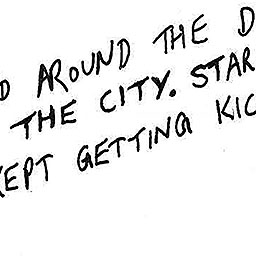 D AROUND THE D
THE CITY. STAR
KEPT GETTING KIC